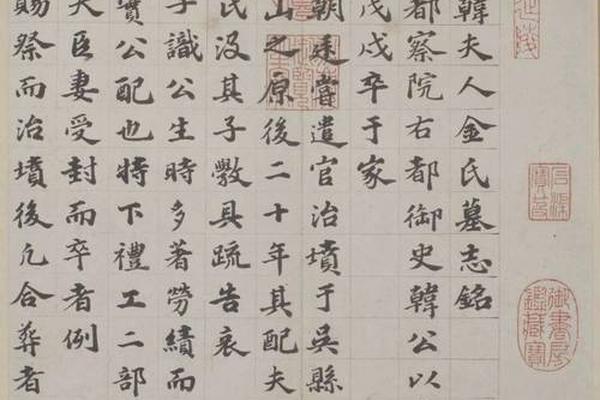 韓夫人金氏墓志銘
都察院右都御史韓公以
戊戌卒于家
朝廷嘗遣官治墳于吳縣
山之原後二十年其配夫
氏沒其子斆具疏告哀
子識公生時多著勞績而
實公配也時下禮工二部
大臣妻受封而卒者例
賜祭而治墳後凡合葬者
石渠寶笈
御書房鑑藏寶